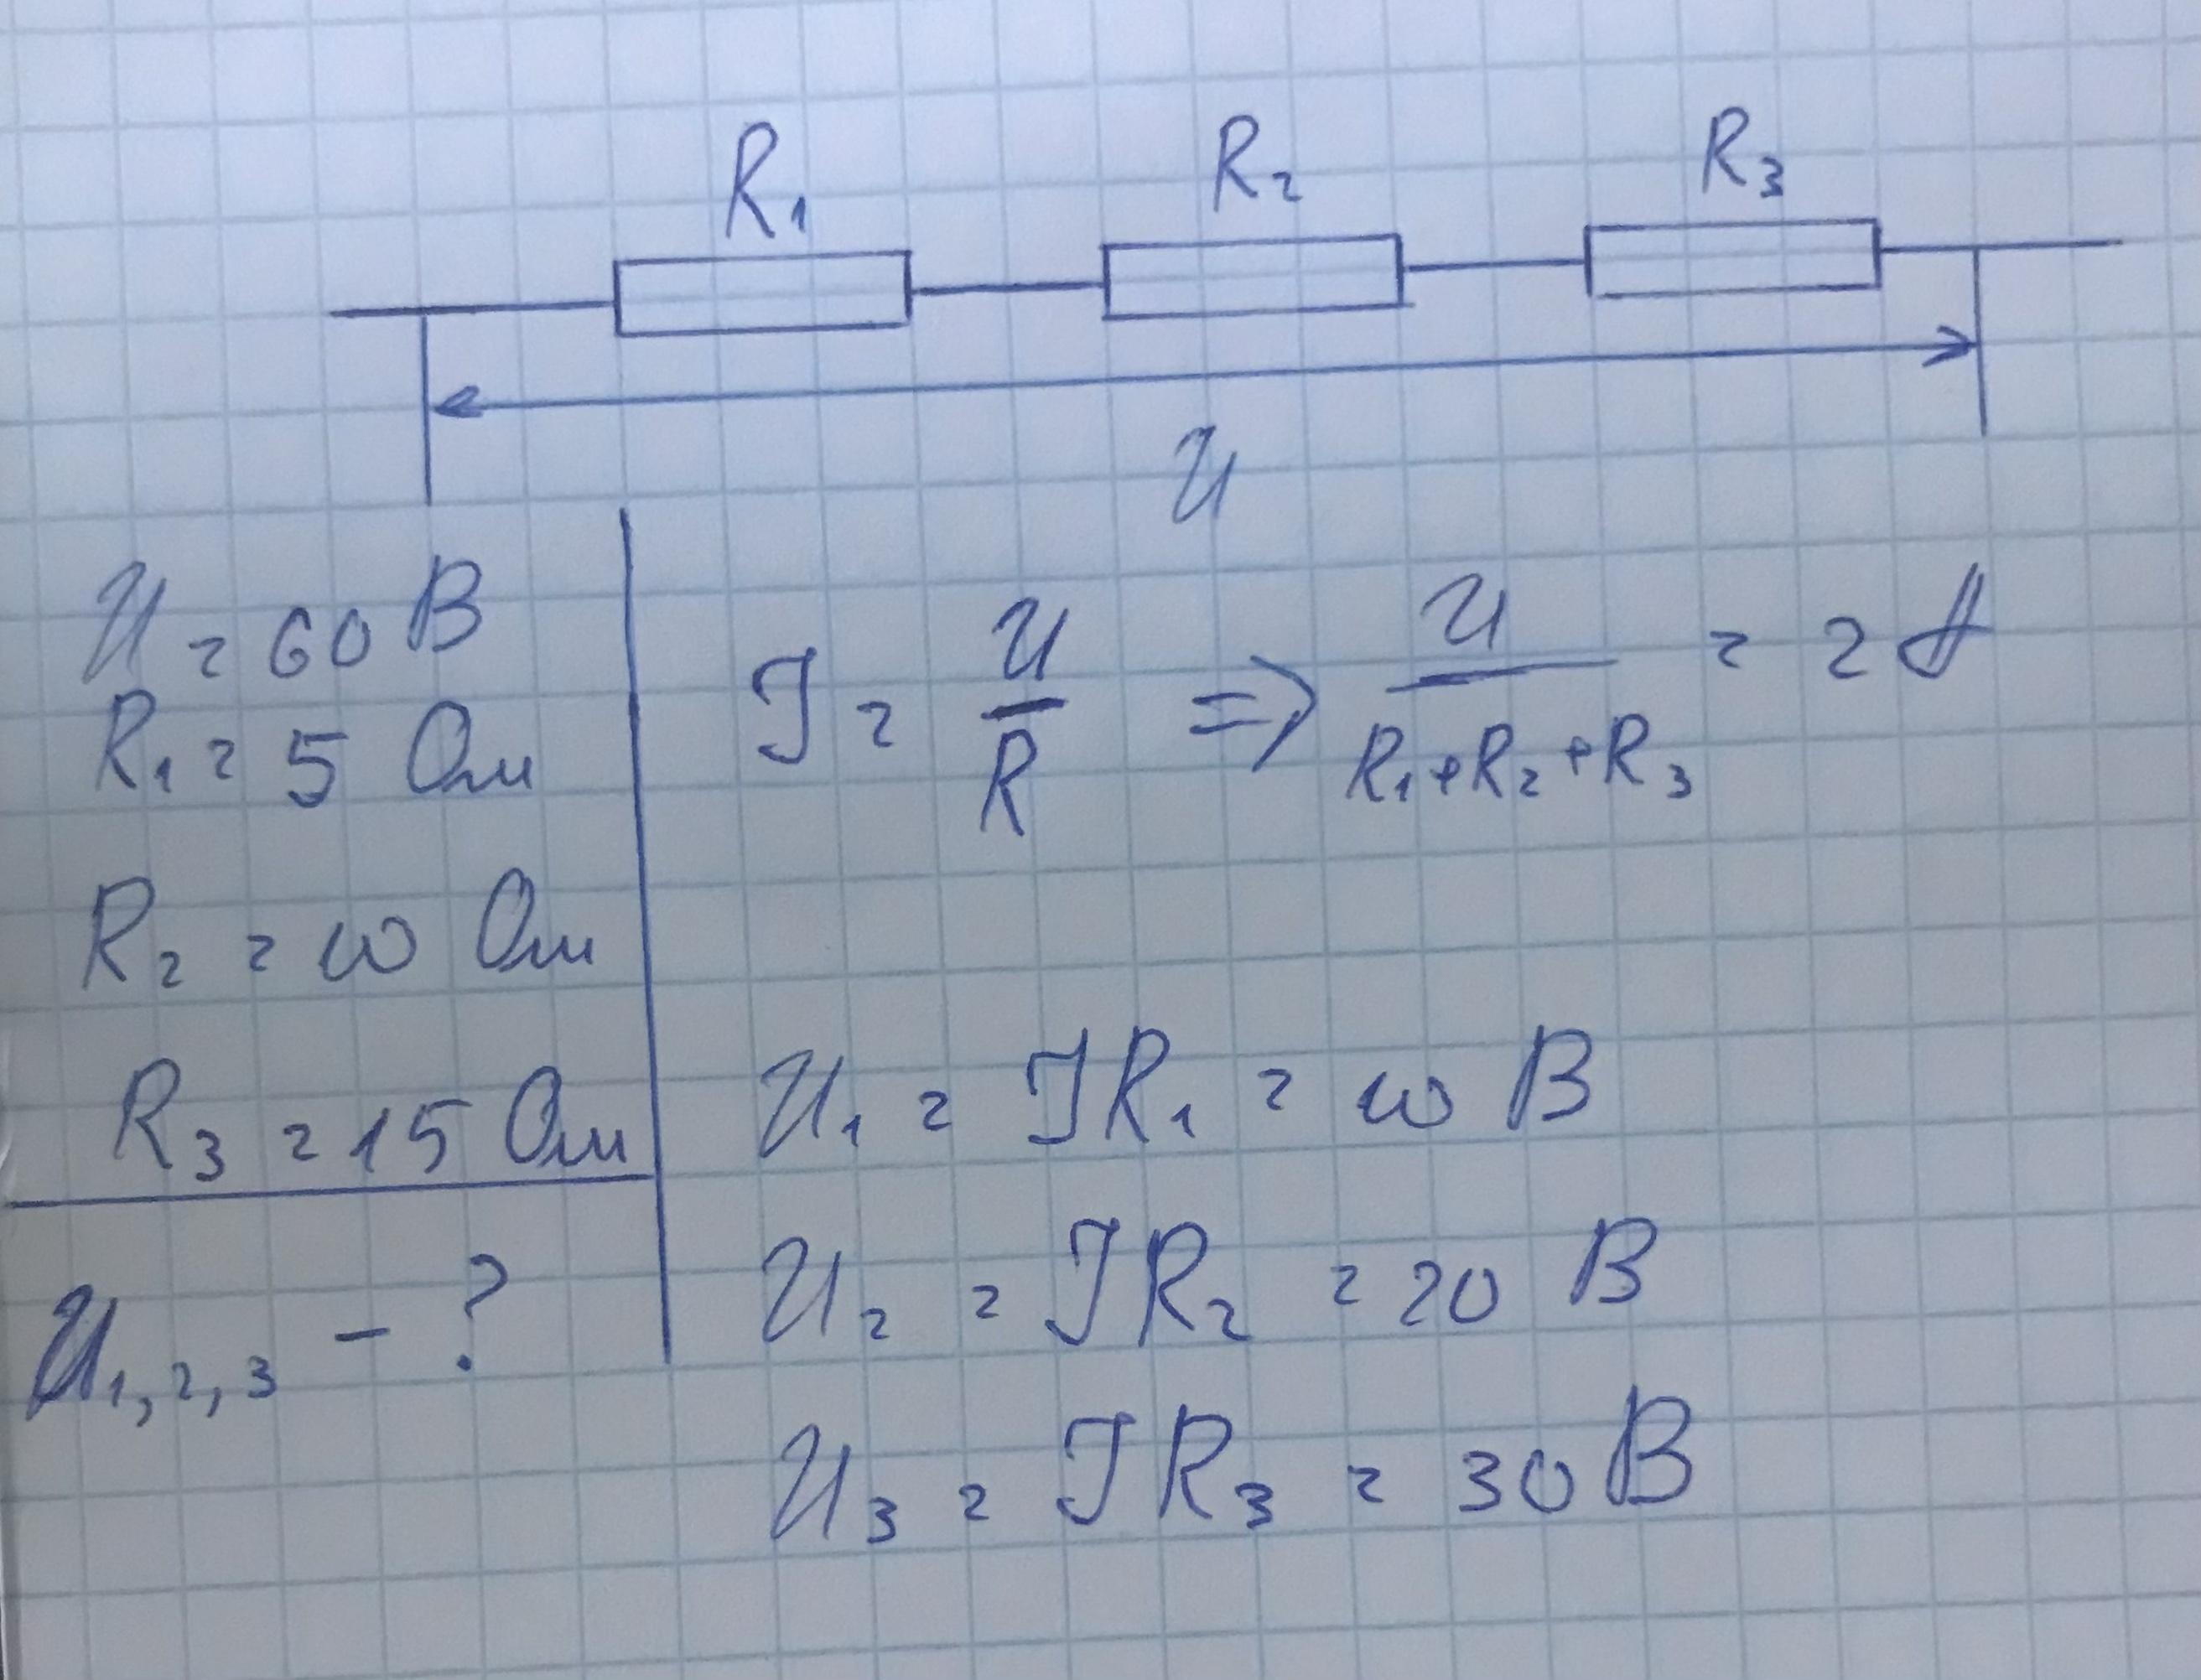 R₁ R₂ R₃
U
U = 60 В
R₁ = 5 Ом
R₂ = 10 Ом
R₃ = 15 Ом
U₁,₂,₃ - ?
I = U/R => U/(R₁+R₂+R₃) = 2 А
U₁ = IR₁ = 10 В
U₂ = IR₂ = 20 В
U₃ = IR₃ = 30 В